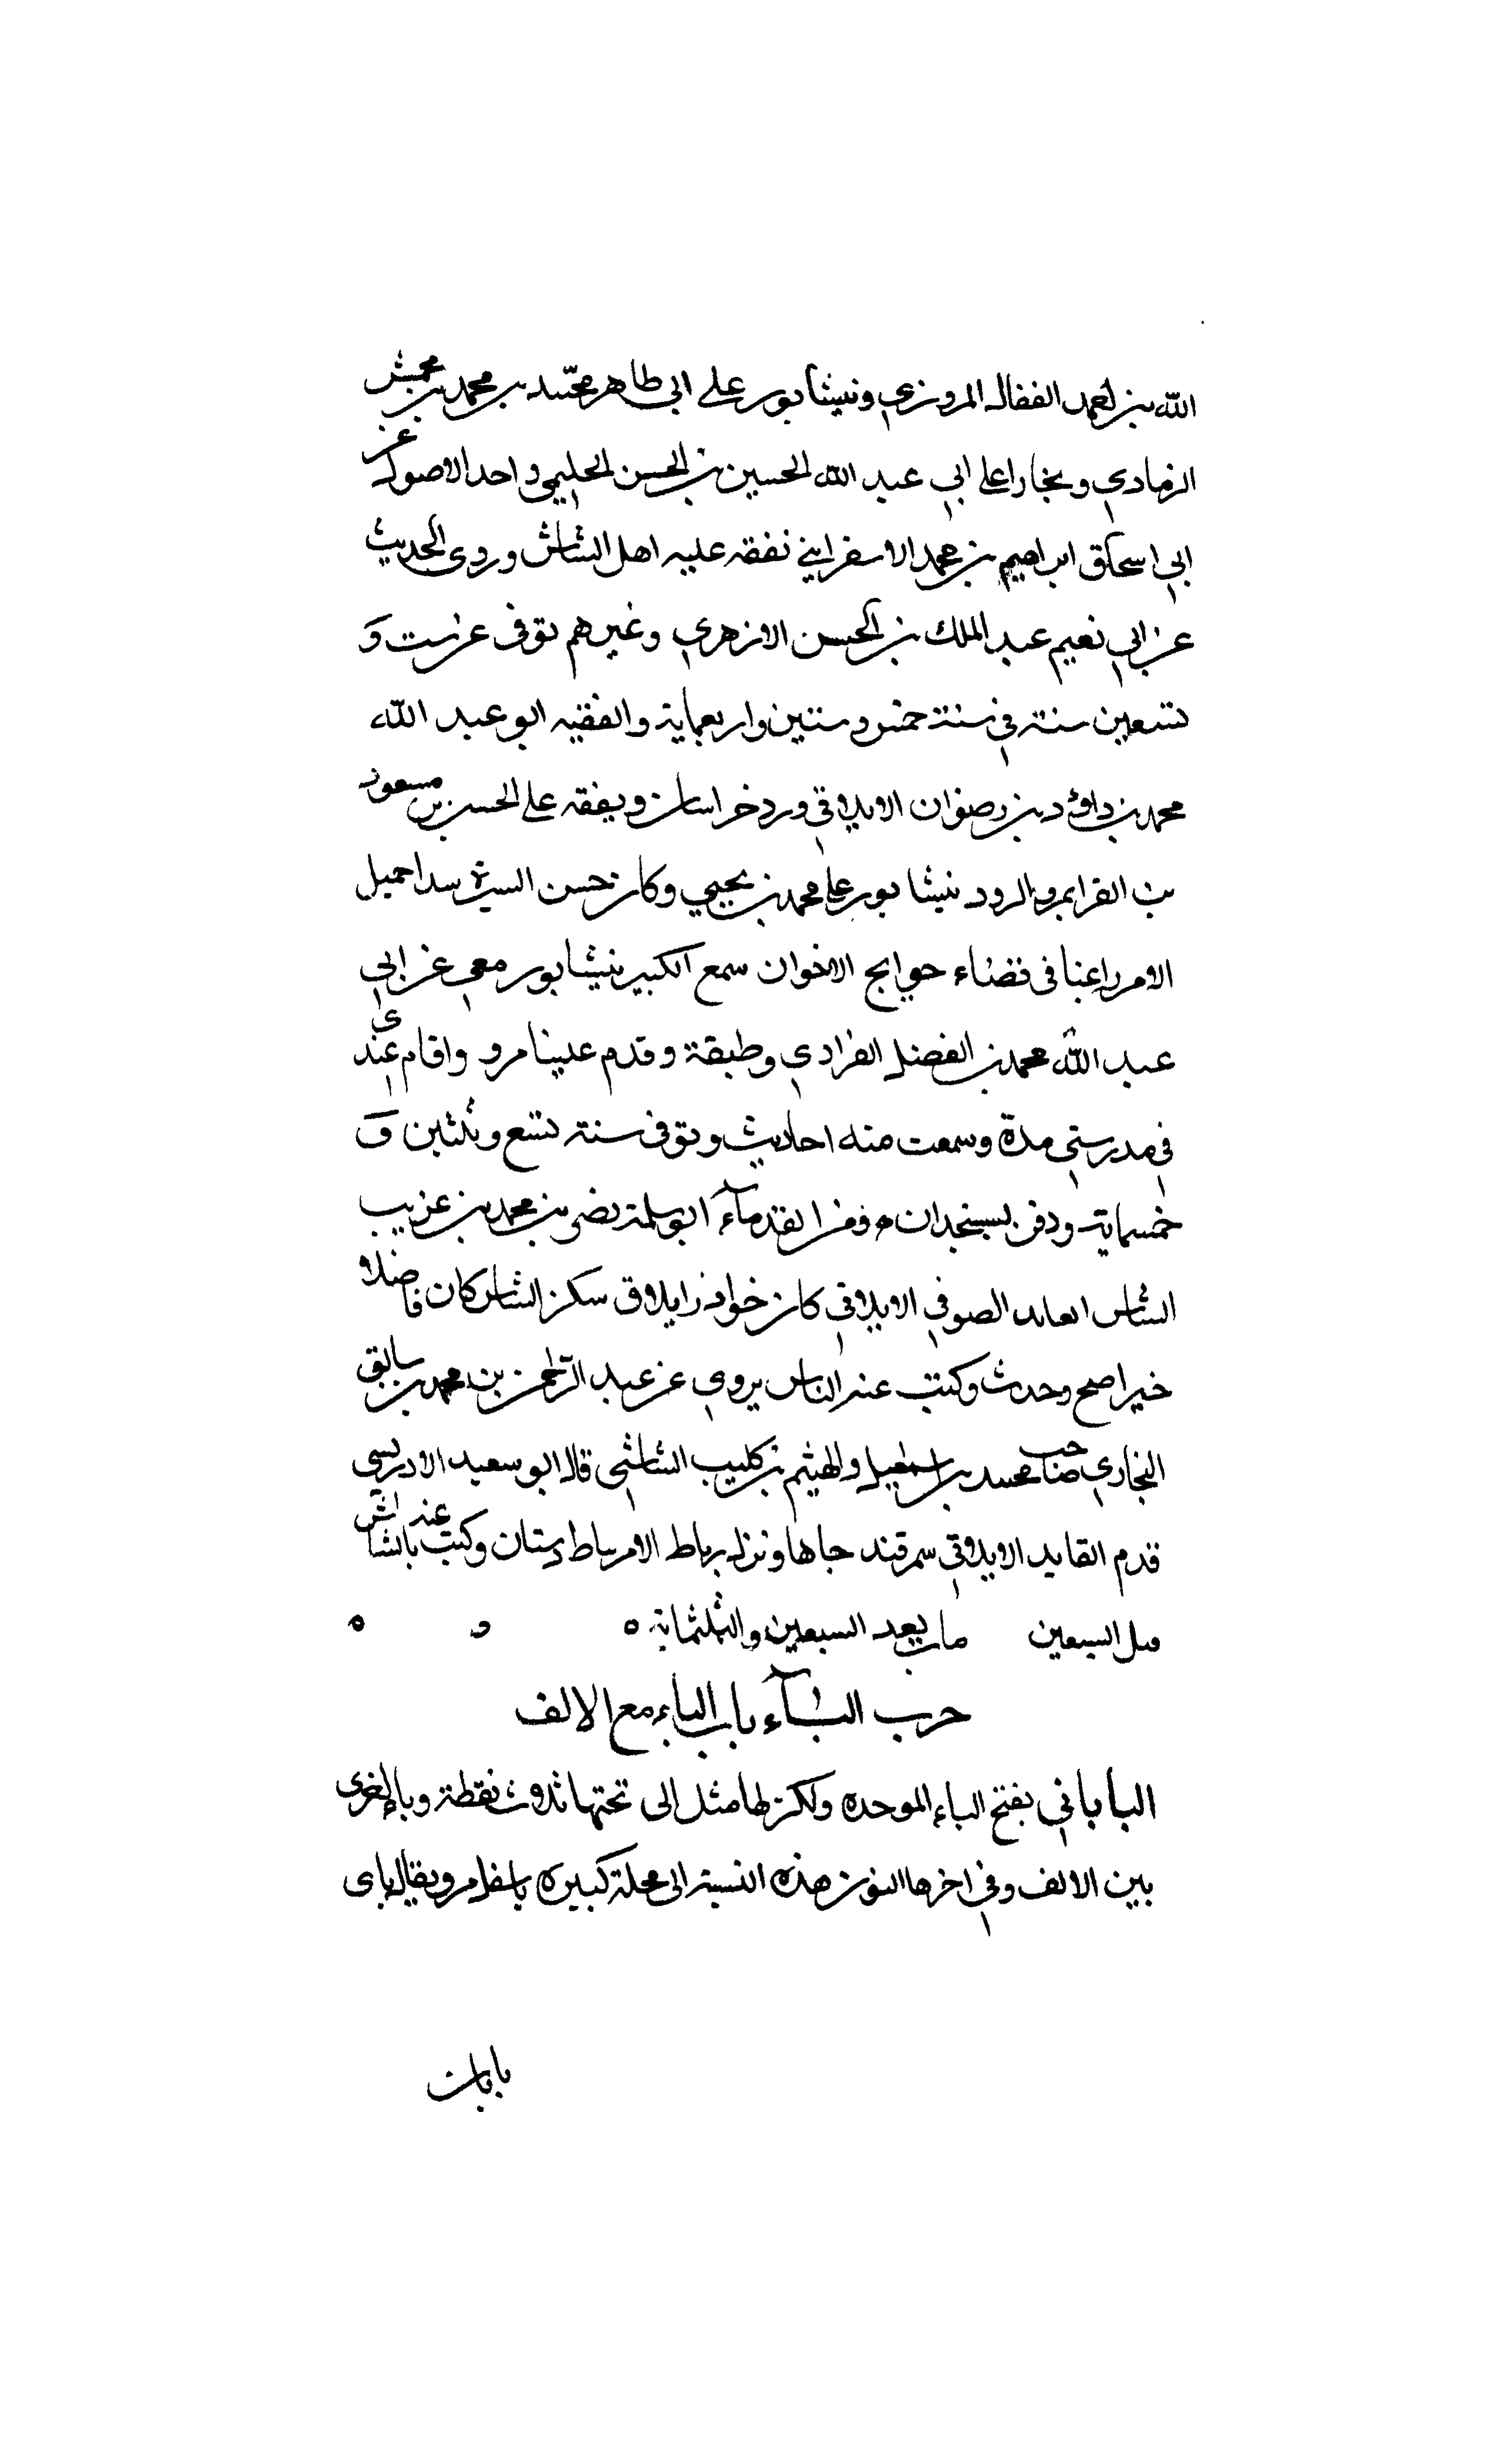 الله بن احمد القفال المروزي ونيشابور على ابي طاهر محمد بن محمد بن محمش
الزيادي وبخارا على ابي عبد الله الحسين بن الحسن الحليمي واخذ الاصول عن
ابي اسحاق ابراهيم بن محمد الاسفرايني تفقه عليه اهل الشاش وروى الحديث
عن ابي نعيم عبد الملك بن الحسن الازهري وغيرهم توفى عن ست و
تسعين سنة في سنة خمس وستين واربعماية والفقيه ابو عبد الله
محمد بن داود بن رضوان الايلاقي ورد خراسان وتفقه على الحسن بن مسعود
بن الفرا بمرو الرود نيشابور على محمد بن يحيي وكان حسن السيرة سدا جميل
الامر راغبا في قضاء حوايج الاخوان سمع الكبير بنيشابور معي عن ابي
عبد الله محمد بن الفضل الفراوي وطبقة وقدم علينا مرو واقام عندى
في مدرستي مدة وسمعت منه احاديث وتوفى سنة تسع وثلثين و
خمسماية ودفن بسنجدان ه ومن القدماء ابو سلمة نضر بن محمد بن غريب
الشاش العابد الصوفي الايلاقي كان خوانر ايلاق سكن الشاس كان فاضلا
خيرا صح وحدث وكتب عنه الناس يروي عن عبد الرحمن بن محمد بن سابق
البخاري صاحب محمد بن اسمعيل والهيثم بن كليب الشاشي قال ابو سعيد الادريسي
قدم القايد الايلاقي سمرقند حاها ونزل برباط الامر باط دستان وكتب عنه بالشاش
قبل السبعين مات بعد السبعين والثلثماية ه
حرب الباء باب الباء مع الالف
الباباني بفتح الباء الموحده ولكن لها مثل الى تحتها ثلاث نقطة وبالاخرى
بين الالف وفي اخرها النون هذه النسبة الى محلة كبيره باسفل مرو يقال باى
بابان